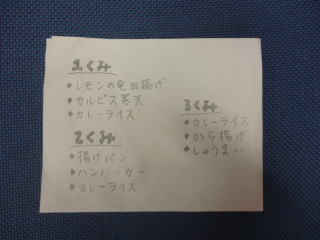 1くみ
・レモンの竜田揚げ
・カルピス寒天
・カレーライス
2くみ
・揚げパン
・ハンバーガー
・カレーライス
3くみ
・カレーライス
・から揚げ
・しゅうまい